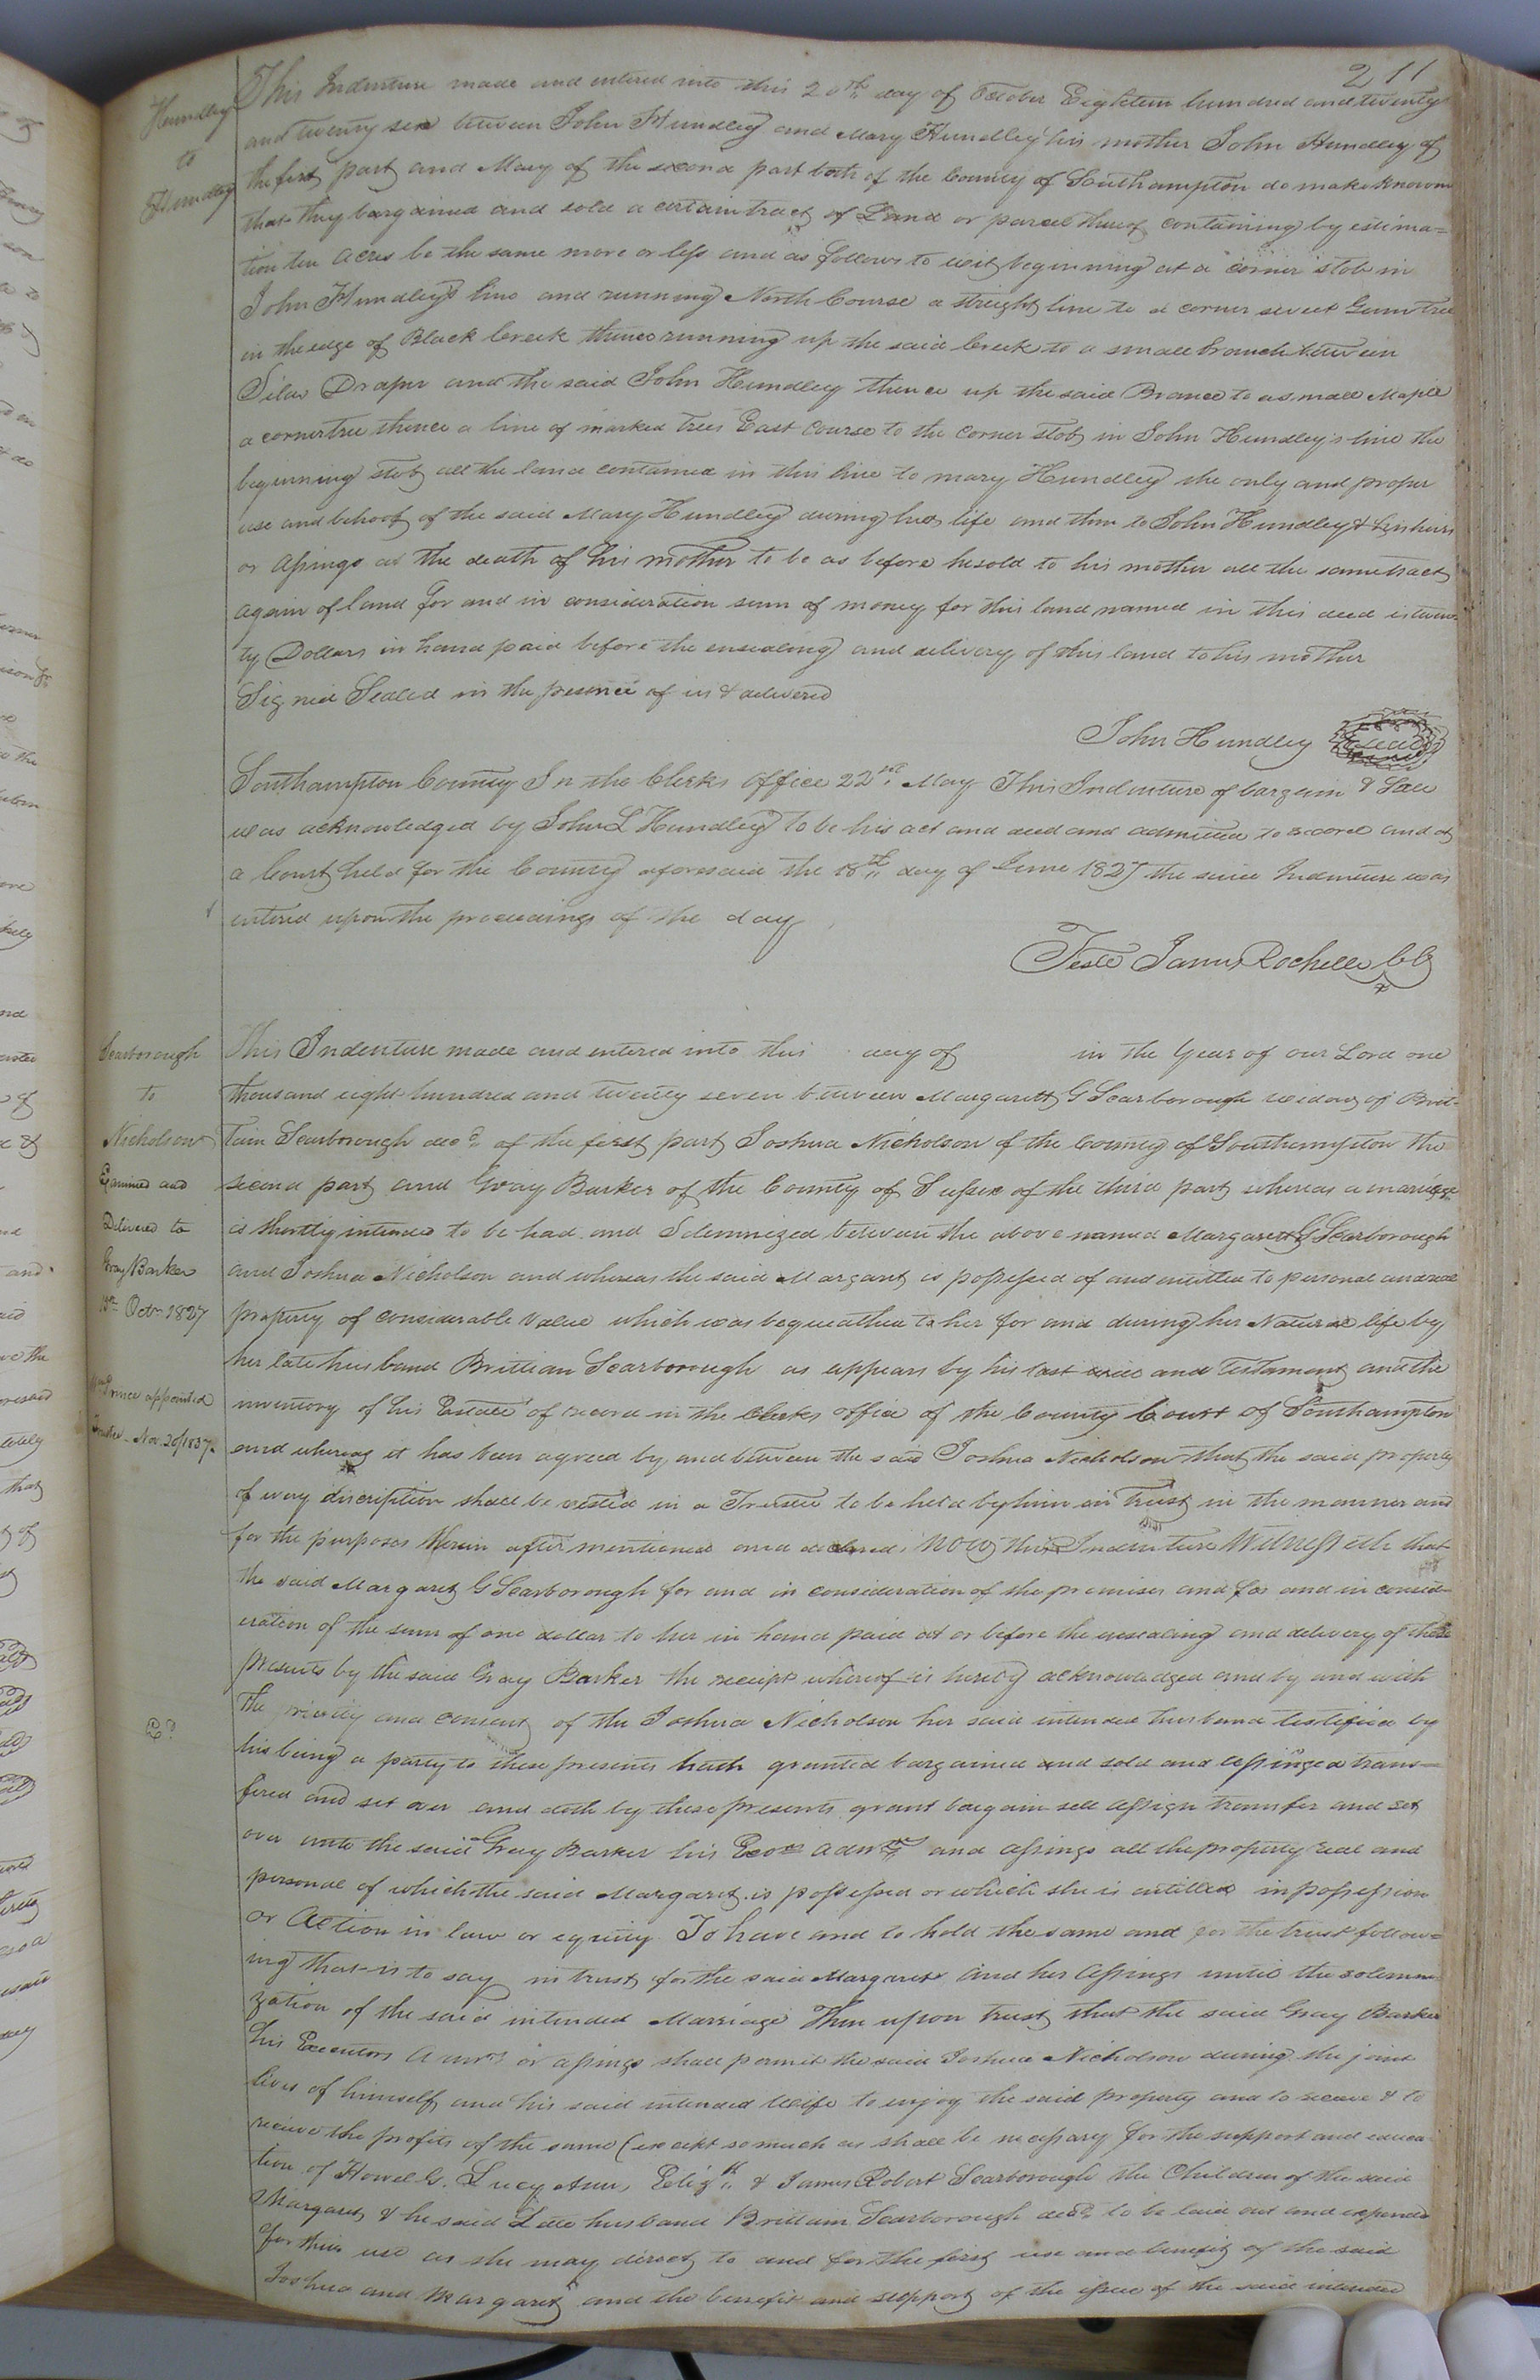 211
Hundley
to
Hundley
This Indenture made and entered into this 20th day of October Eighteen hundred and twenty
and twenty six between John Hundley and Mary Hundley his mother John Hundley of
the first part and Mary of the second part both of the County of Southampton do make known
that they bargained and sold a certain tract of Land or parcel thereof containing by estima=
tion ten acres be the same more or less and as follows to wit beginning at a corner stob in
John Hundley's line and running North Course a streight line to a corner sweet Gum tree
in the edge of Black Creek thence running up the said Creek to a small branch between
Silas Draper and the said John Hundley thence up the said Brance to a small Maple
a corner tree thence a line of marked trees East Course to the corner stob in John Hundley's line the
beginning stob all the land contained in this line to mary Hundley the only and proper
use and behoof of the said Mary Hundley during her life and then to John Hundley & his heirs
or assings at the death of his mother to be as before he sold to his mother all the same tract
again of land for and in consideration sum of money for this land named in this deed is twen-
ty Dollars in hand paid before the ensealing and delivery of this land to his mother
Signed Sealed in the presence of us & delivered
John Hundley Seal
Southampton County In the Clerks office 22nd May This Indenture of bargain & Sale
was acknowledged by John L Hundley to be his act and deed and admitted to record and at
a Court held for the County aforesaid the 18th day of June 1827 the said Indenture was
entered upon the proceedings of the day
Teste James Rochelle CC
Scarborough
to
Nicholson
Examined and
Delivered to
Gray Barker
Octr 1827
Prince appointed
Trustee Nov. 20/1837.
This Indenture made and entered into this day of in the Year of our Lord one
thousand eight hundred and twenty seven between Margarett G Scarborough widow of Brit-
tain Scarborough decd. of the first part Joshua Nicholson of the County of Southampton the
second part and Gray Barker of the County of Sussex of the third part whereas a marriage
is shortly intended to be had and Solemnized between the above named Margarett G Scarborough
and Joshua Nicholson and whereas the said Margaret is possessed of and entitled to personal and real
property of considerable value which was bequeathed to her for and during her Natural life by
her late husband Brittian Scarborough as appears by his last will and Testament and the
inventory of his Estate of record in the Clerks office of the County Court of Southampton
and whereas it has been agreed by and between the said Joshua Nicholson that the said property
of every discription shall be vested in a Trustee to be held by him in Trust in the manner and
for the purposes herein after mentioned and declared. Now this Indenture Witnesseth that
the said Margaret G Scarborough for and in consideration of the premises and for and in consid-
eration of the sum of one dollar to her in hand paid at or before the ensealing and delivery of these
presents by the said Gray Barker the receipt whereof is hereby acknowledged and by and with
the privity and consent of the Joshua Nicholson her said intended husband testified by
his being a party to these presents hath granted bargained and sold and assinged trans-
fered and set over and doth by these presents grant bargain sell assign transfer and set
over unto the said Gray Barker his Exors admrs and assings all the property real and
personal of which the said Margaret is possessed or which she is entitled in possession
or Action in law or equity To have and to hold the same and for the trust follow=
ing that is to say in trust for the said Margaret and her Assings until the solemni-
zation of the said intended Marriage Then upon trust that the said Gray Barker
his Executors admrs or assings shall permit the said Joshua Nicholson during the joint
lives of himself and his said intended Wife to enjoy the said property and to receive & to
receive the profits of the same (except so much as shall be necessary for the support and educa-
tion of Howel G. Lucy Ann, Elizth & James Robert Scarborough the Children of the said
Margaret & he said Late husband Brittain Scarborough decd to be laid out and expended
for their use as she may direct to and for the first use and benefit of the said
Joshua and Margaret and the benefit and support of the issue of the said intended